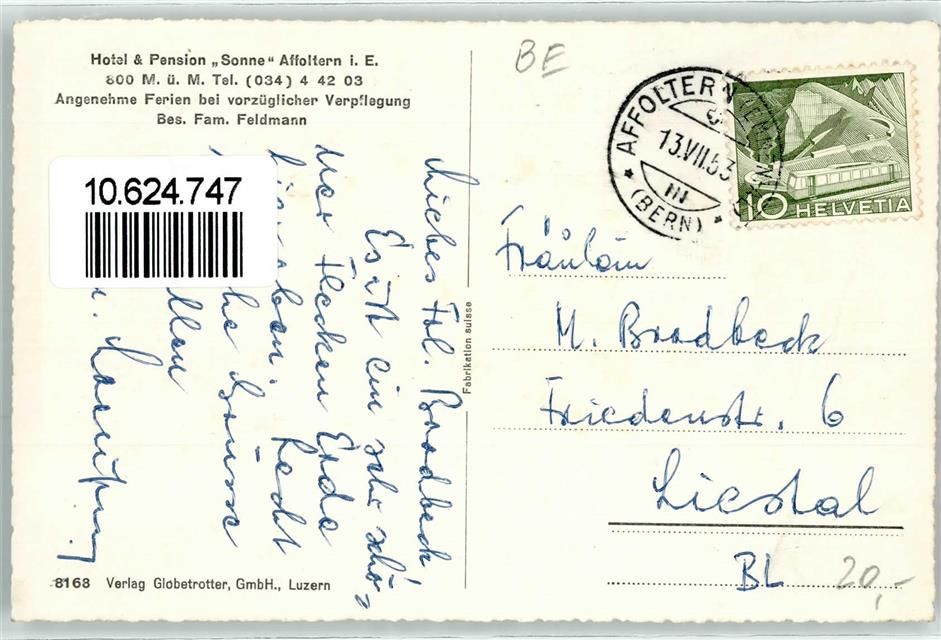 Hotel & Pension „Sonne“ Affoltern i. E.
800 M. ü. M. Tel. (034) 4 42 03
Angenehme Ferien bei vorzüglicher Verpflegung
Bes. Fam. Feldmann
10.624.747
Liebes Frl. Brodbeck
Es ist ein sehr schö-
ner Flecken Erde
hier oben. Recht
Grüsse
8168 Verlag Globetrotter, GmbH., Luzern
Fabrikation suisse
BE
AFFOLTERN (EMMENTAL)
13.VII.53
III
* (BERN) *
10 HELVETIA
Fräulein
M. Brodbeck
Friedenstr. 6
Liestal
BL
20,-